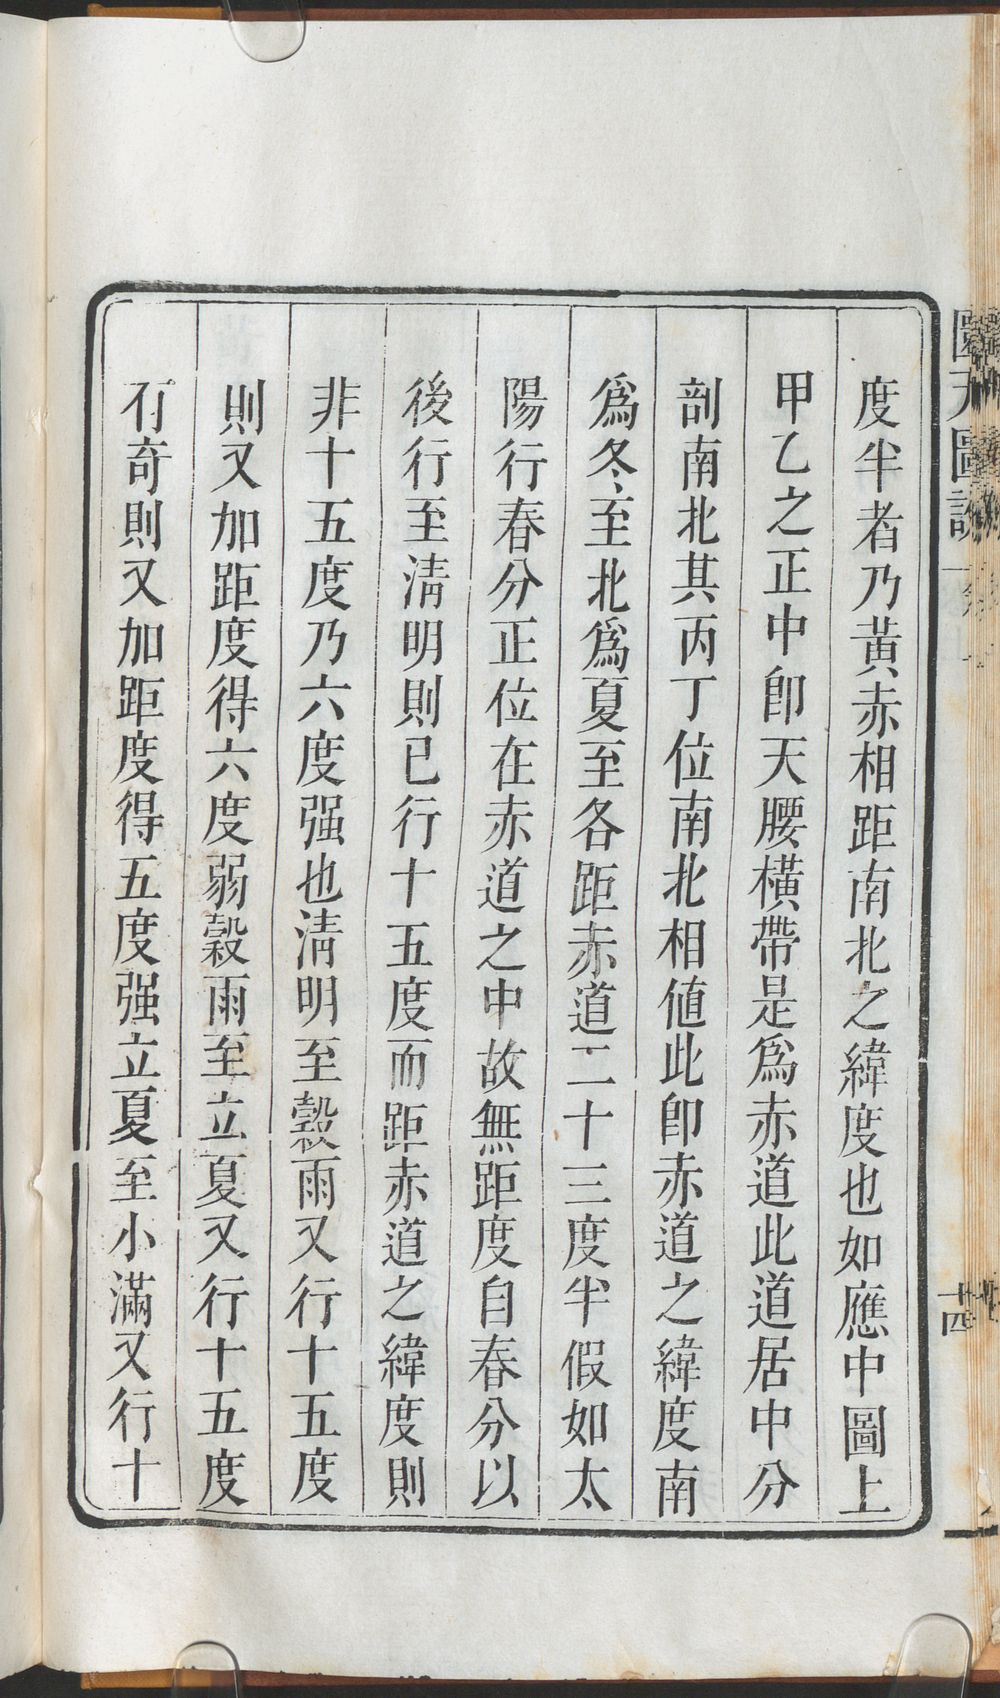 度半者乃黃赤相距南北之緯度也如應中圖上
甲乙之正中卽天腰橫帶是爲赤道此道居中分
剖南北其丙丁位南北相値此卽赤道之緯度南
爲冬至北爲夏至各距赤道二十三度半假如太
陽行春分正位在赤道之中故無距度自春分以
後行至淸明則已行十五度而距赤道之緯度則
非十五度乃六度强也淸明至穀雨又行十五度
則又加距度得六度弱穀雨至立夏又行十五度
有奇則又加距度得五度强立夏至小滿又行十
圜天圖說
十四